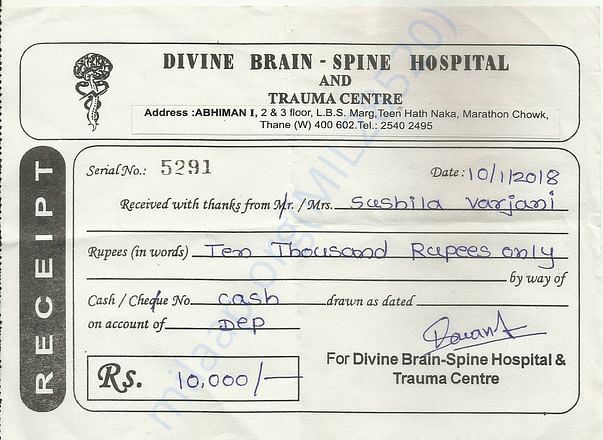 DIVINE BRAIN - SPINE HOSPITAL
AND
TRAUMA CENTRE
Address :ABHIMAN I, 2 & 3 floor, L.B.S. Marg,Teen Hath Naka, Marathon Chowk,
Thane (W) 400 602.Tel.: 2540 2495
RECEIPT
Serial No.: 5291 Date: 10/1/2018
Received with thanks from Mr. / Mrs. Sushila Varjani
Rupees (in words) Ten Thousand Rupees only
by way of
Cash / Cheque No. cash drawn as dated
on account of DEP
For Divine Brain-Spine Hospital &
Trauma Centre
Rs. 10,000/-